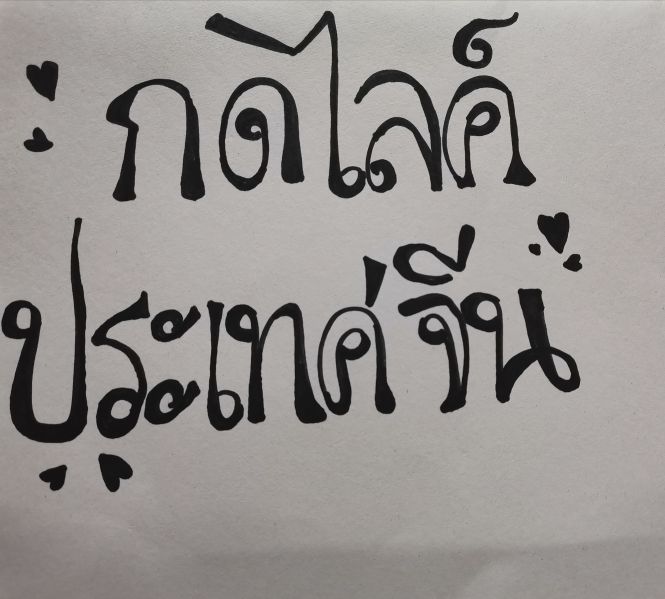 กดไลค์
ประเทศจีน